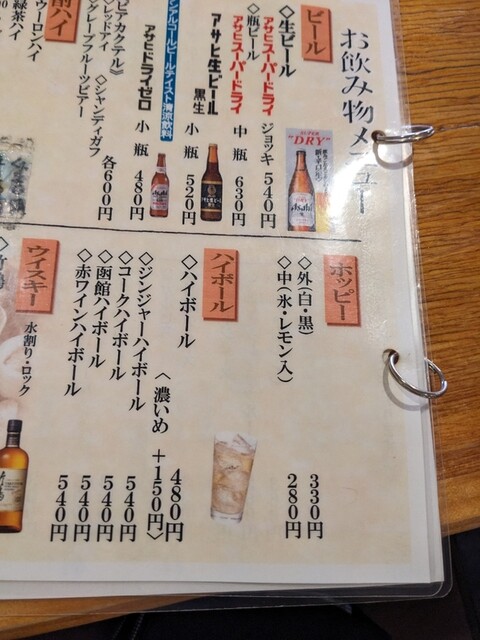 お飲み物メニュー
ビール
◇生ビール
アサヒスーパードライ ジョッキ 540円
◇瓶ビール
アサヒスーパードライ 中瓶 630円
アサヒ生ビール 黒生 小瓶 520円
ノンアルコールビールテイスト清涼飲料
アサヒドライゼロ 小瓶 480円
ビアカクテル》 各600円
◇レッドアイ ◇シャンディガフ
グレープフルーツビアー
酎ハイ
ウーロンハイ
緑茶ハイ
SUPER
"DRY"
Asahi
ホッピー
◇外(白・黒) 330円
◇中(氷・レモン入) 280円
ハイボール
◇ハイボール 480円
〈濃いめ +150円〉
◇ジンジャーハイボール 540円
◇コークハイボール 540円
◇函館ハイボール 540円
◇赤ワインハイボール 540円
ウイスキー
水割り・ロック
◇竹鶴